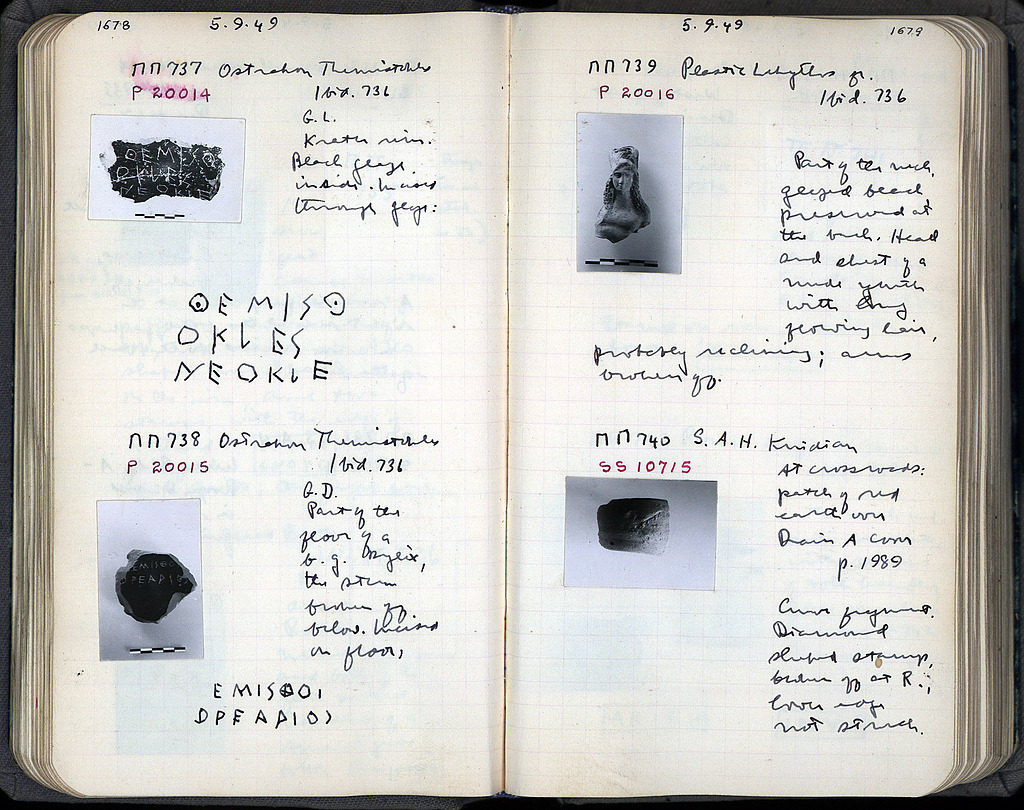 1678
5.9.49
ΠΠ 737 Ostrakon Themistokles
P 20014 Ibid. 736
G.L.
Krater rim.
Black glaze
inside. Incised
through glaze:
ΘEMISΘ
OKLES
NEOKLE
ΠΠ 738 Ostrakon Themistokles
P 20015 Ibid. 736
G.D.
Part of the
floor of a
b.g. kylix,
the stem
broken off
below. Incised
on floor,
EMISΘOI
DPEAPIOS
5.9.49
1679
ΠΠ 739 Plastic Lekythos fr.
P 20016 Ibid. 736
Part of the neck,
glazed black
preserved at
the back. Head
and chest of a
nude youth
with long
flowing hair,
probably reclining; arms
broken off.
ΠΠ 740 S.A.H. Knidian
SS 10715
At crossroads:
patch of red
earth over
Drain A cover
p. 1989
Curve fragment.
Diamond
shaped stamp,
broken off at R.;
lower edge
not struck.